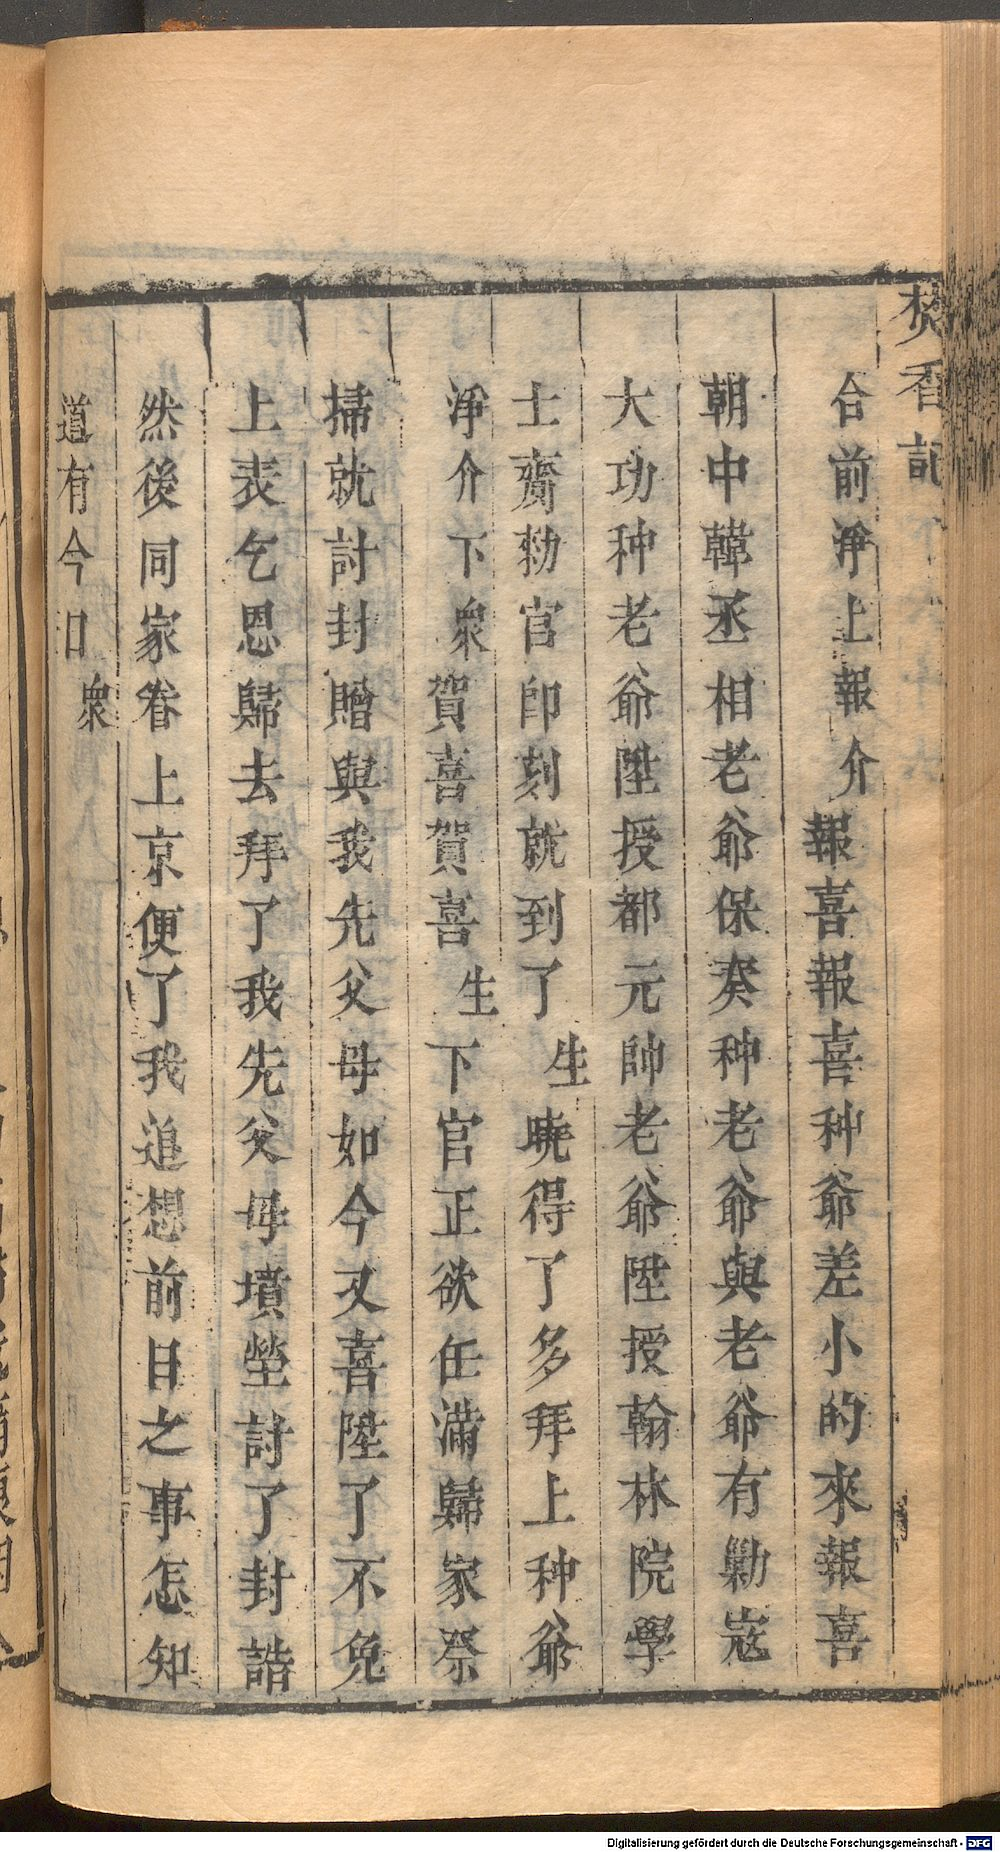 焚香記
合前淨上報介報喜報喜种爺差小的來報喜
朝中韓丞相老爺保奏种老爺與老爺有勦寇
大功种老爺陞授都元帥老爺陞授翰林院學
士齎勑官即刻就到了生曉得了多拜上种爺
淨介下衆賀喜賀喜生下官正欲任滿歸家祭
掃就討封贈與我先父母如今又喜陞了不免
上表乞恩歸去拜了我先父母墳塋討了封誥
然後同家眷上京便了我追想前日之事怎知
道有今日衆
Digitalisierung gefördert durch die Deutsche Forschungsgemeinschaft - DFG